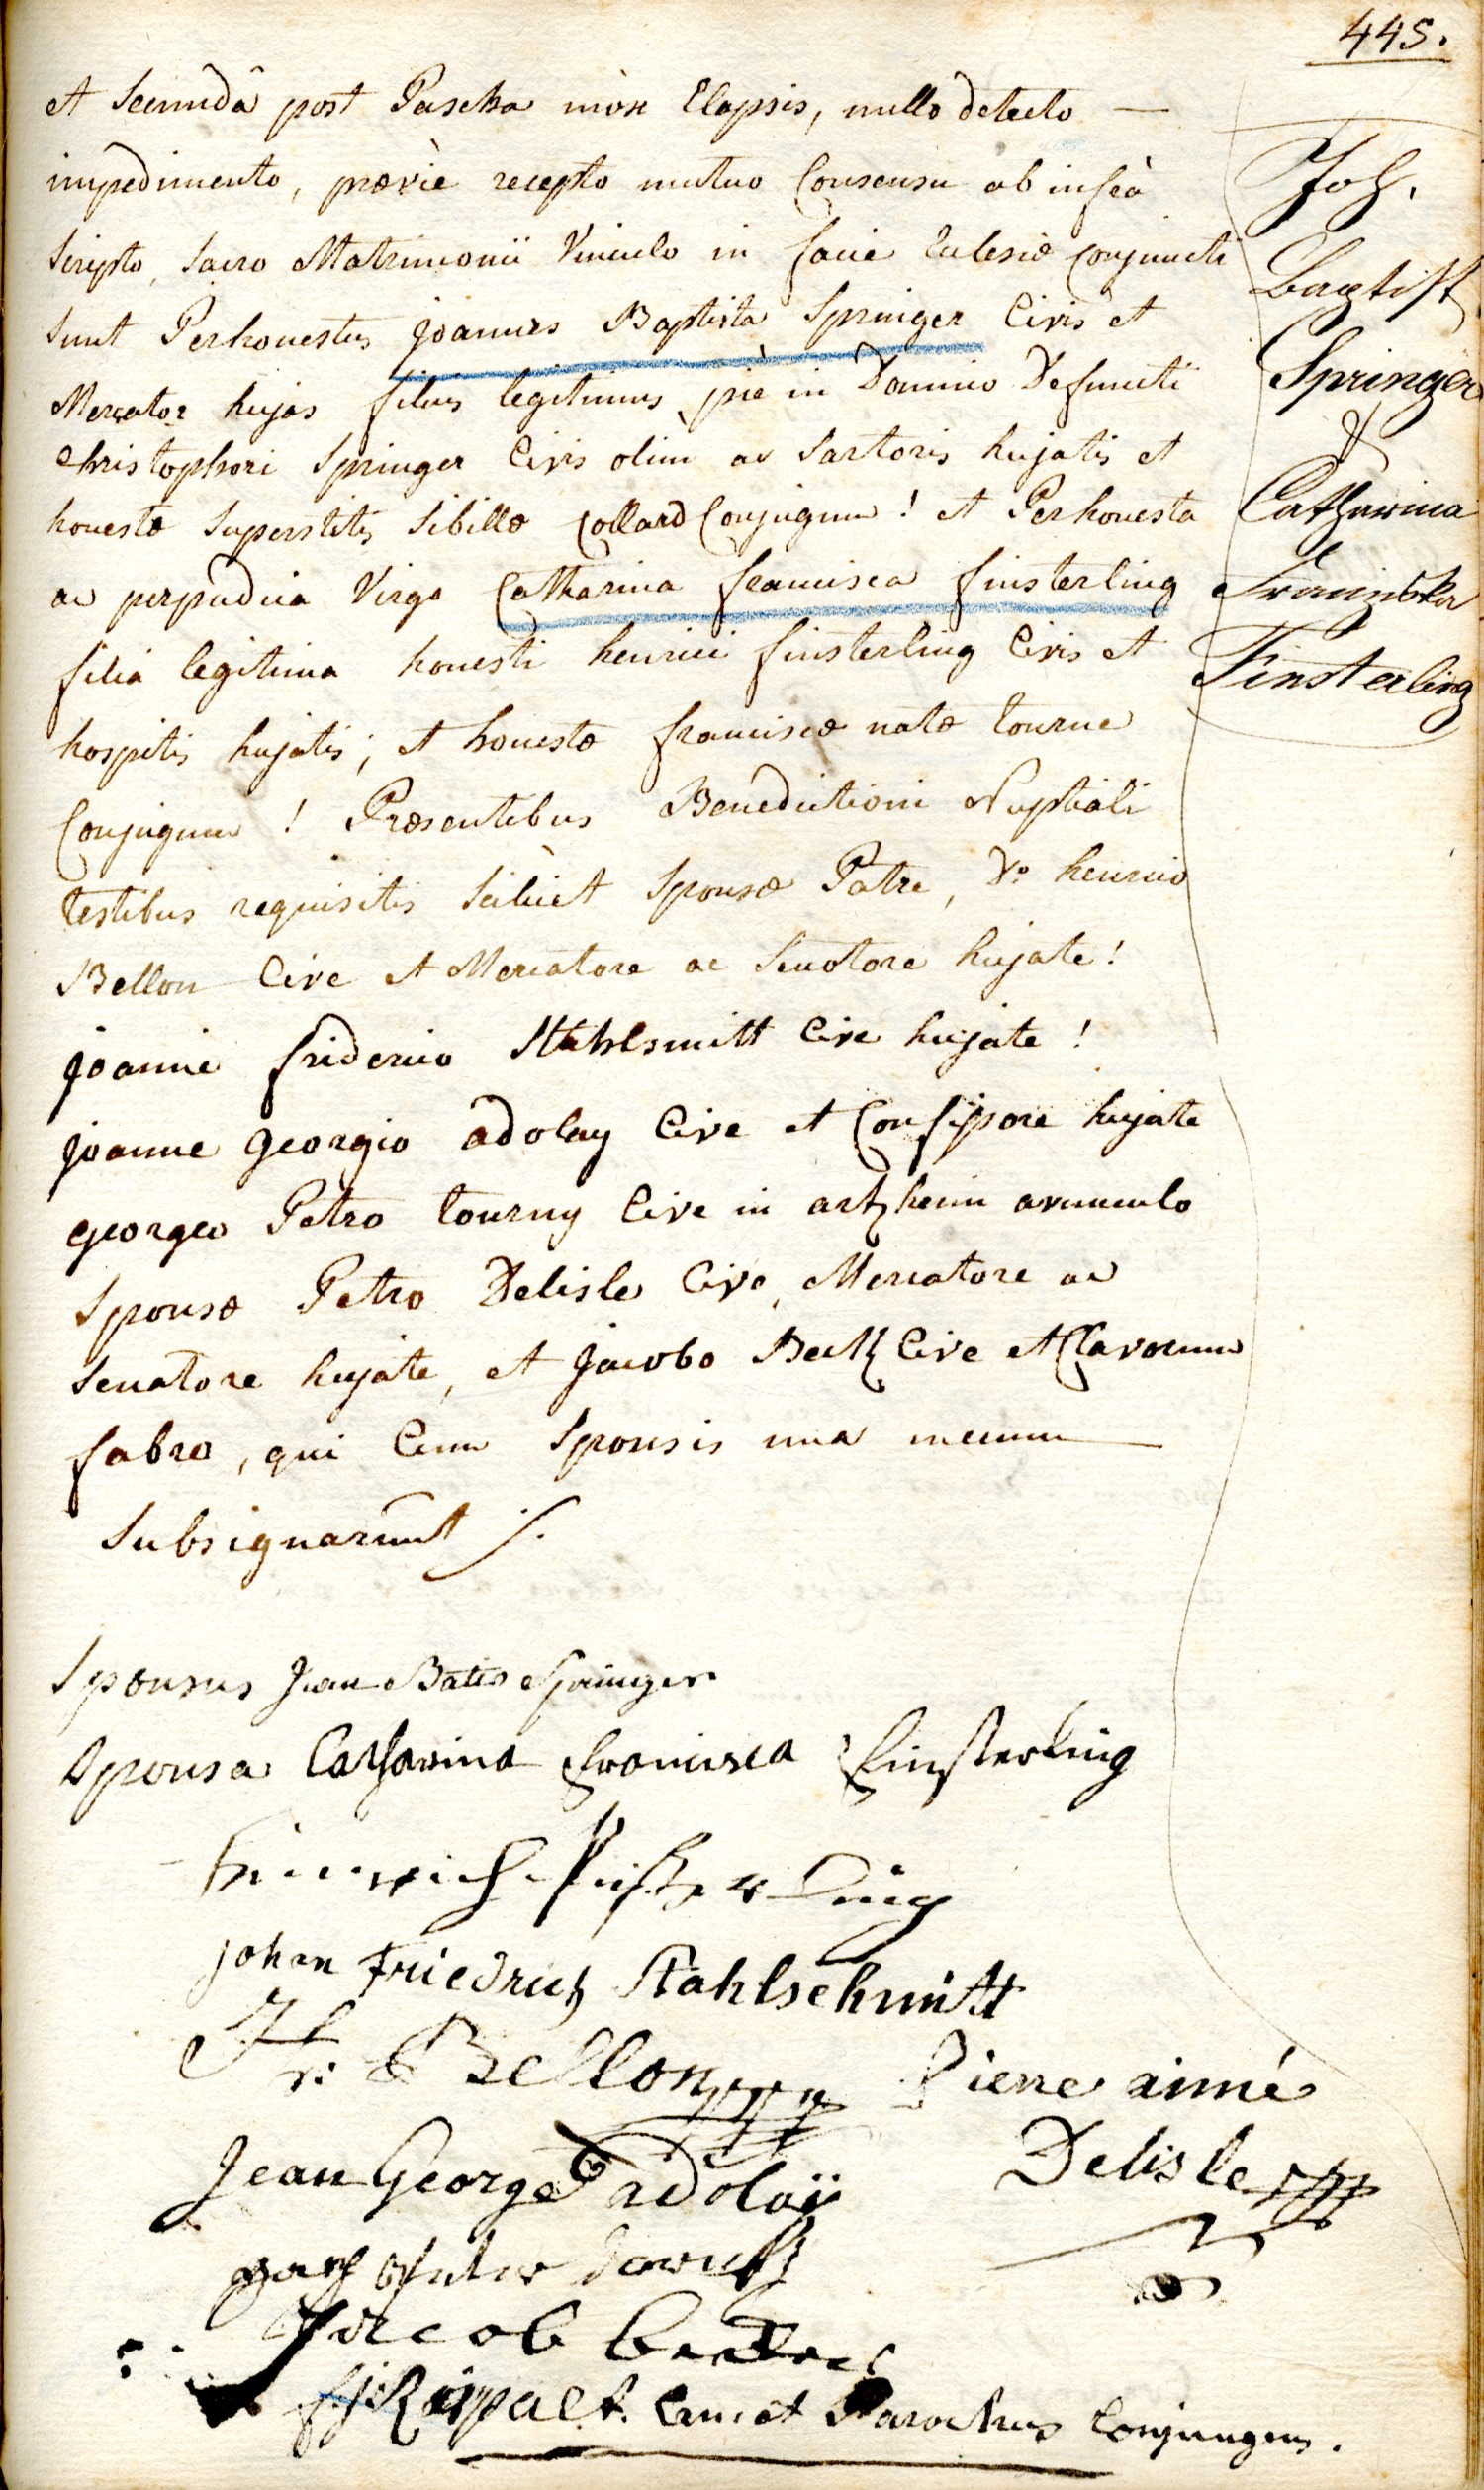 445.
et secundâ post Pascha mòx Elapsis, nullo detecto —
impedimento, præviè recepto mutuo Consensu ab infrà
scripto, sacro Matrimonii Vinculo in facie Eclesiæ conjuncti
sunt Perhonestus joannes Baptista Springer Civis et
Mercator hujas filius legitimus piè in Domino Defuncti
christophori Springer Civis olim ac Sartoris hujatis et
honestæ superstitis Sibillæ collard Conjugum ! et Perhonesta
ac perpudica Virgo Catharina francisca finsterling
filia legitima honesti henrici finsterling Civis et
hospitis hujatis; et honestæ franciscæ natæ tourne
Conjugum ! Præsentibus Benedictioni Nuptiali
testibus requisitis scilicet Sponsæ Patre, Do henrico
Bellon Cive et Mercatore ac Senatore hujate !
joanne friderico Stahlsmitt Cive hujate !
joanne georgio adolay Cive et Consessore hujate
georgeo Petro tourny Cive in artzheim avunculo
Sponsæ Petro Delisle Cive, Mercatore ac
Senatore hujate, et jacobo Beck Cive et Clavorum
fabro, qui Cum Sponsis una mecum —
subsignarunt ./.
Joh.
Baptist
Springer
&
Catharina
Franziska
Finsterling
Sponsus Jean Batis Springer
Sponsa Catharina Francisca Finsterling
Heinrich Finsterling
johan Friedrich Stahlschmitt
Hr: Bellon
Pierre aimé
Delisle
Jean George adolaÿ
Jacob
Parochus Conjungens.